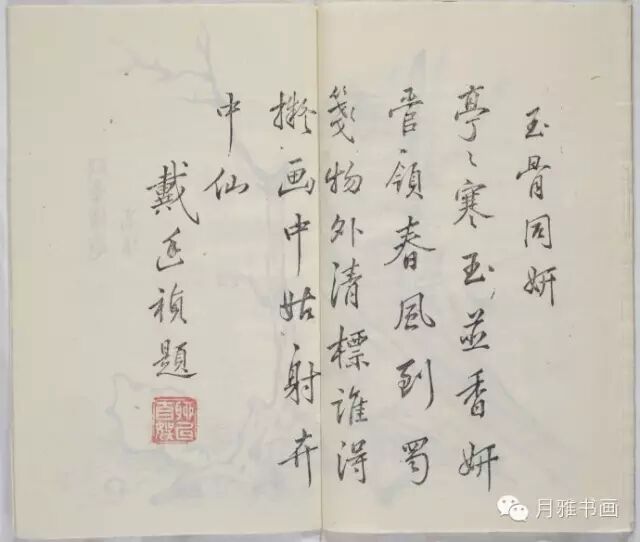 玉骨同妍
亭〻寒玉並香妍
管領春風到蜀
箋物外清標誰得
擬画中姑射卉
中仙
戴禎題
月雅书画